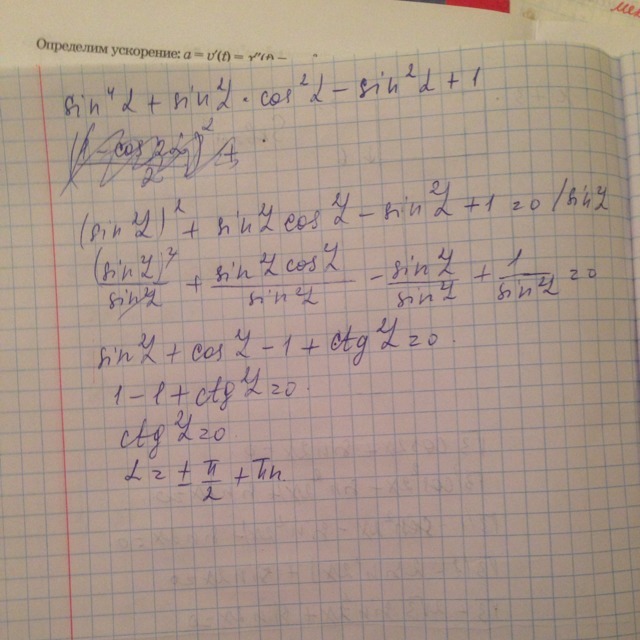 Определим ускорение: a = v'(t) =
sin⁴α + sin²α · cos²α − sin²α + 1
(sin²α)² + sin²α cos²α − sin²α + 1 = 0 / sin²α
(sin²α)²/sin²α + sin²α cos²α/sin²α − sin²α/sin²α + 1/sin²α = 0
sin²α + cos²α − 1 + ctg²α = 0.
1 − 1 + ctg²α = 0.
ctg²α = 0.
α = ± π/2 + πn.